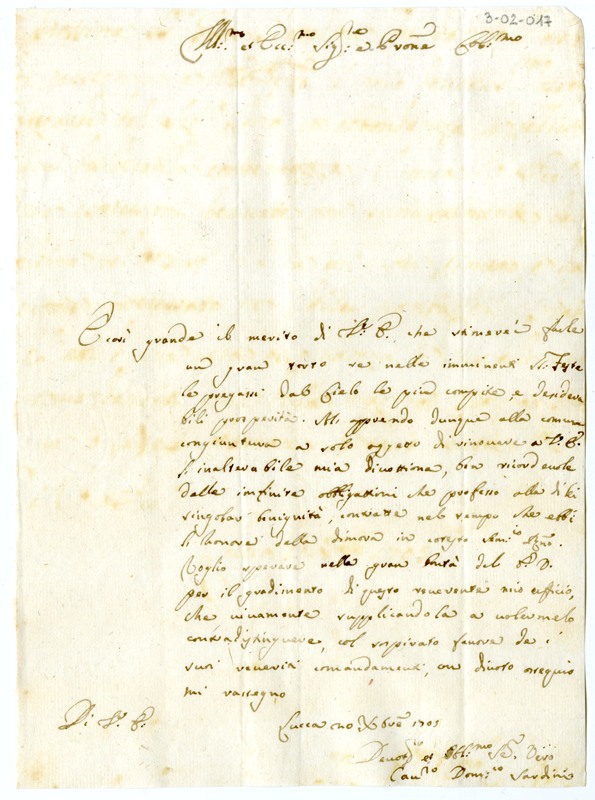 3-02-017
Ill:mo et Ecc:mo Sig:re e Prone Coll:mo
È così grande il merito di V. E., che stimerei farle
un gran torto se nelle imminenti SS. Feste
le pregassi dal Cielo le più compite, e desidera
bili prosperità. Mi apprendo dunque alla comune
congiuntura a solo oggetto di rinovare a V. E.
l'inalterabile mia divottione, ben ricordevole
delle infinite obligattioni che professo alla di lei
singolar benignità, contratte nel tempo che ebbi
l'honore della dimora in cotesto
Voglio sperare nella gran bontà del
per il gradimento di questo reverente mio officio,
che vivamente supplicandola a volermelo
contradistinguere, col sospirato favore de i
suoi veneriti comandamenti, con divoto ossequio
mi rassegno
Di V. E.
Lucca Xbre 1701
Devot:o et Obbl:mo Se:
Dom:co Sardini